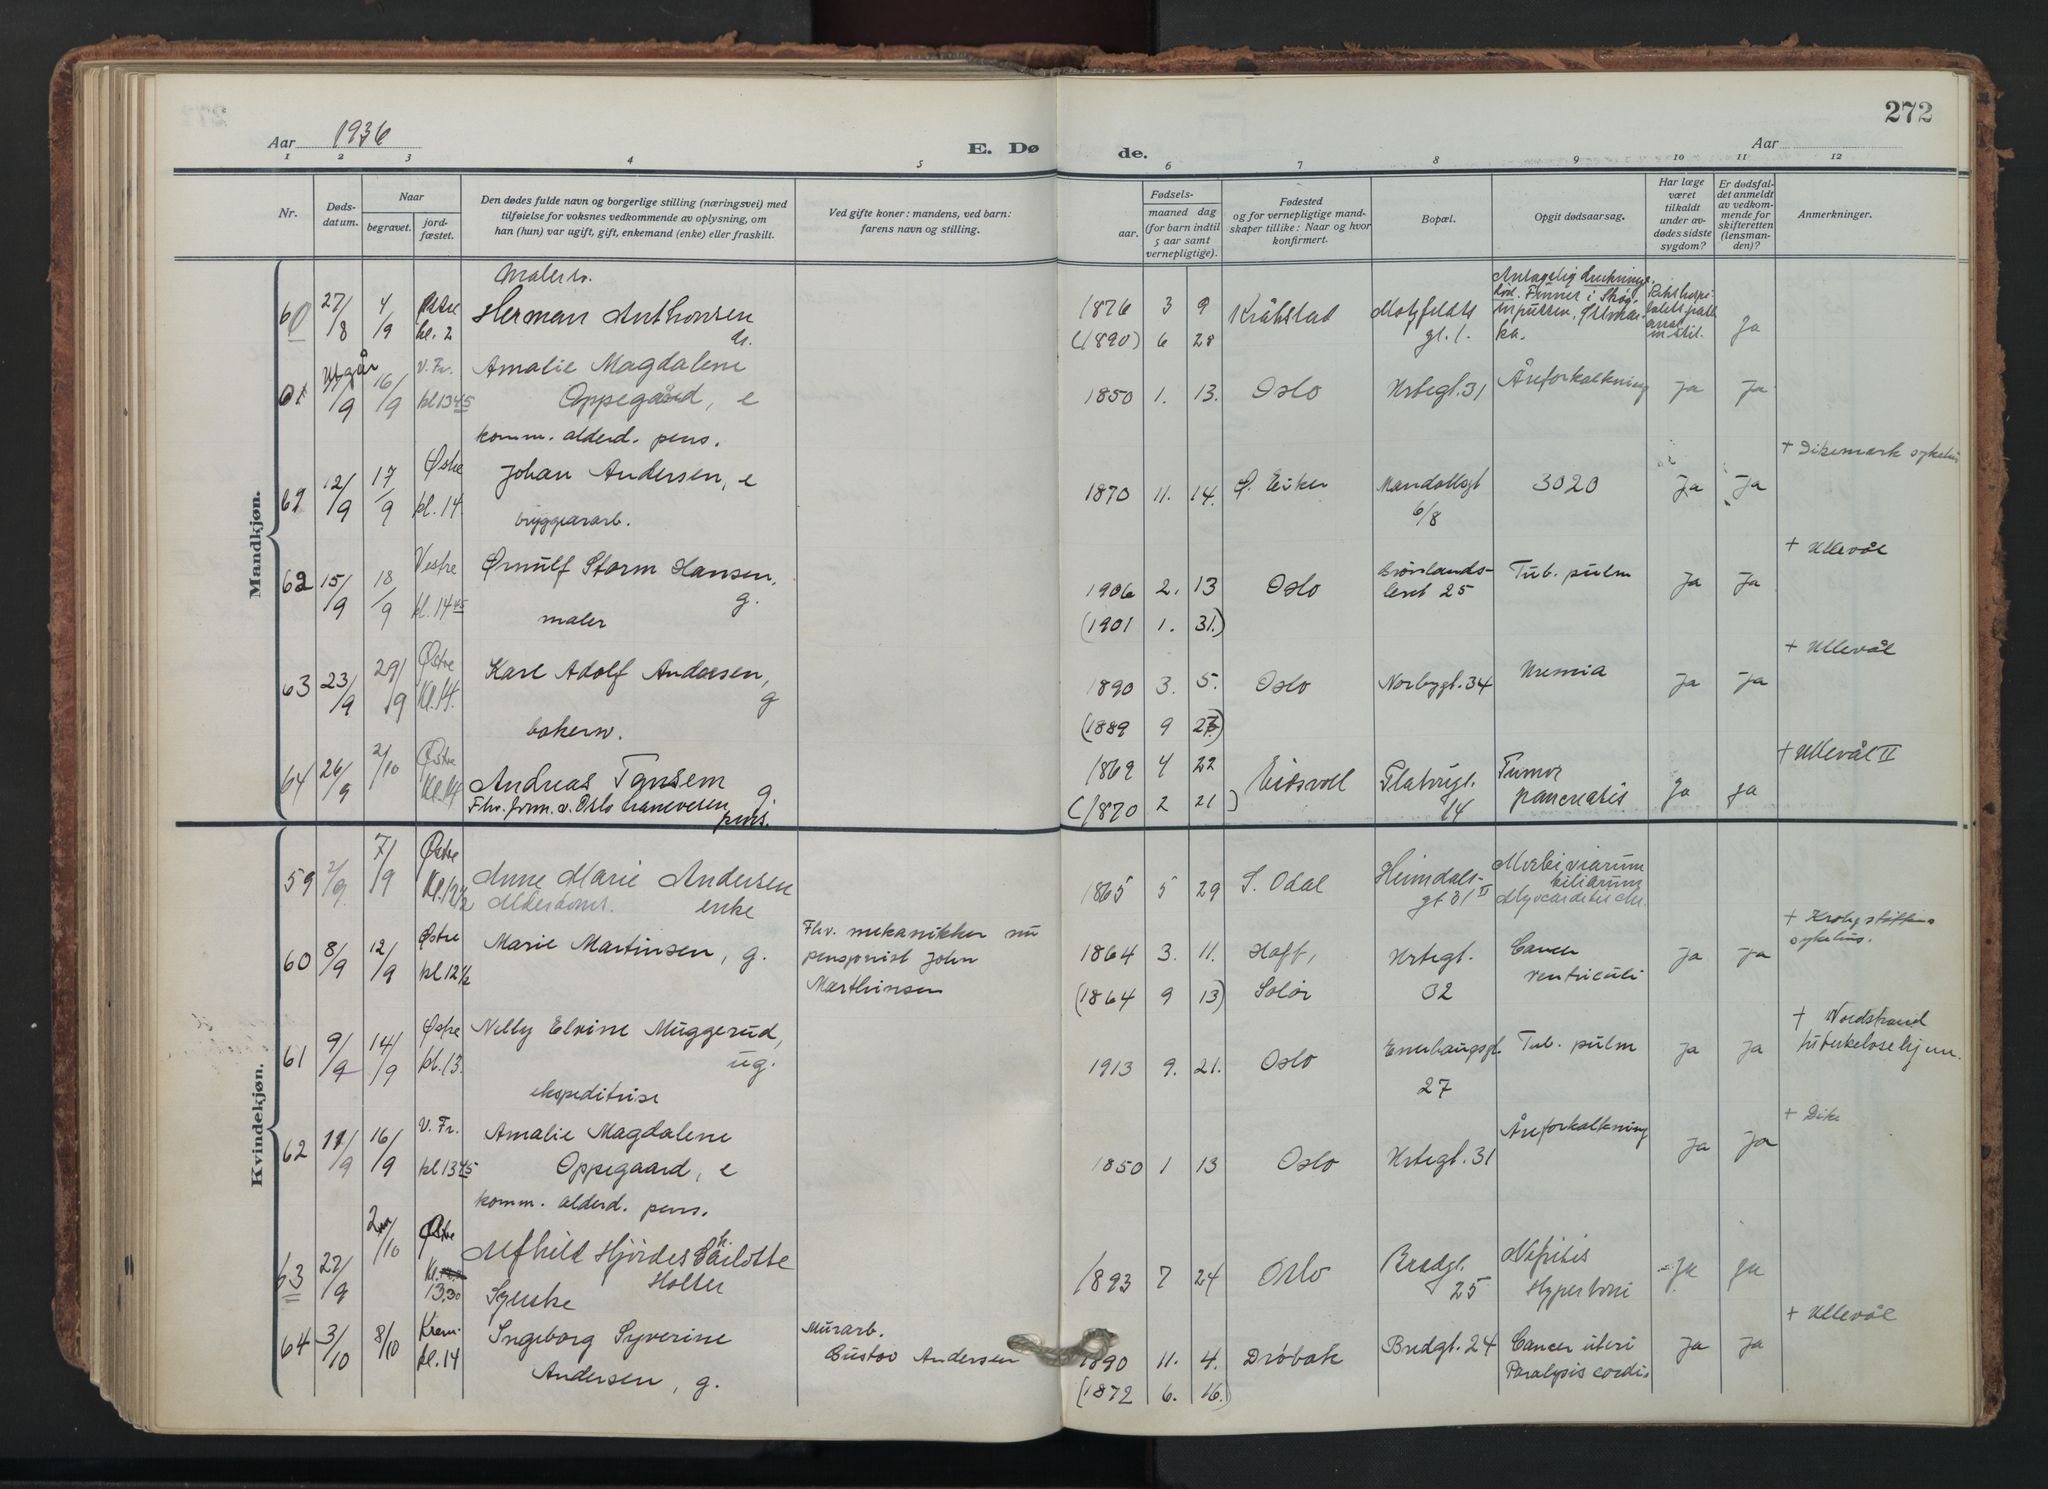 272
Aar 1936
E. Dø de.
Aar
1 2 3 4 5 6 7 8 9 10 11 12
Nr.
Døds-
datum.
Naar
begravet.
jord-
fæstet.
Den dødes fulde navn og borgerlige stilling (næringsvei) med
tilføielse for voksnes vedkommende av oplysning, om
han (hun) var ugift, gift, enkemand (enke) eller fraskilt.
Ved gifte koner: mandens, ved barn:
farens navn og stilling.
aar.
Fødsels-
maaned dag
(for barn indtil
5 aar samt
vernepligtige).
Fødested
og for vernepligtige mand-
skaper tillike: Naar og hvor
konfirmert.
Bopæl.
Opgit dødsaarsag.
Har læge
været
tilkaldt
under av-
dødes sidste
sygdom?
Er dødsfal-
det anmeldt
av vedkom-
mende for
skifteretten
(lensman-
den)?
Anmerkninger.
Mandkjøn.
60 27/8 4/9 Østre kl. 2
Herman Anthonsen
1876 3 9 Kråkstad
(1890) 6 28
Motzfeldts
gt. 1.
Ja
Utgår
16/9 V. Fr. kl 13 45
Amalie Magdalene
Oppegaard, e
komm. alderd. pens.
1850 1. 13. Oslo Urtegt. 31 Åreforkalkning ja ja
12/9 17/9 Østre kl. 14.
Johan Andersen, e
bryggeriarb.
1870 11. 14. Ø. Eiker Mandallsgt
6/8
3020 Ja Ja + Dikemark sykehus
62 15/9 18/9 Vestre kl. 14 45
Ørnulf Storm Hansen,
g.
maler
1906 2. 13 Oslo
(1901 1. 31.)
Brønlands-
leret 25
Tub. pulm Ja Ja + Ullevål
63 23/9 29/9 Østre Kl. 14.
Karl Adolf Andersen,
g
bakerm.
1890 3. 5. Oslo Norbygt. 34 Uremia Ja Ja + Ullevål
(1889 9 27)
64 26/9 2/10 Østre Kl. 14
Andreas Tansem g.
Fhv. form. v. Oslo havnevesen
pens.
1869 4 22 Eidsvoll
(1870 2 21)
14
Tumor
pancreatis
Ja ja + Ullevål II
Kvindekjøn.
59 2/9. 7/9 Østre Kl. 12 1/2
Anne Marie Andersen
enke
1865 5 29 S. Odal
Heimdals-
gt 31 II
60 8/9 12/9 Østre kl 12 1/2
Marie Martinsen, g.
Fhv. mekanikker nu
pensjonist John
Marthinsen
1864 3. 11. Hoff,
(1864 9 13) Solør
Urtegt.
32
Cancer
ventriculi
ja ja
+ Krohgstøttens
sykehus.
61 9/9 14/9 Østre kl. 13.
Nelly Elvine Muggerud,
ug.
ekspeditrise
1913 9. 21. Oslo
Enerhaugsgt.
27
Tub. pulm ja ja
+ Nordstrand
tuberkelosehjem.
62 11/9 16/9 V. Fr. kl 13 45
Amalie Magdalene
Oppegaard, e
komm. alderd. pens.
1850 1 13 Oslo Urtegt. 31 Åreforkalkning ja ja + Dike
63 22/9 2/10 Østre Kl. 13.30
Alfhild Hjördes Charlotte
Holter
Syerske
1893 7 24 Oslo
Bredgt.
25
Nefritis
Hypertoni
Ja ja
64 3/10 8/10 Krem. kl. 14
Ingeborg Syverine
Andersen, g.
Murarb.
Gustav Andersen
1890 11. 4. Drøbak Bredgt. 24
(1872 6. 16.)
Cancer uteri
Paralysis cordis
Ja Ja + Ullevål